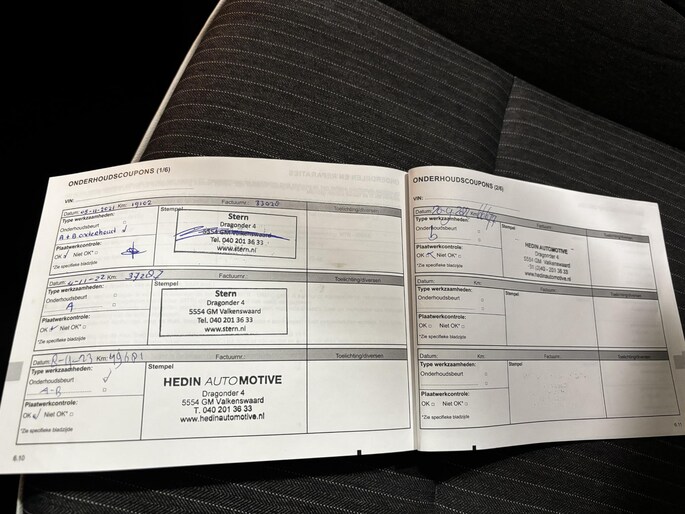 ONDERHOUDSCOUPONS (1/6)
VIN:
Datum: 08-11-2021 Km: 19102 Factuurnr.: 33020
Type werkzaamheden: Stempel Toelichting/diversen
Onderhoudsbeurt
A + B
Plaatwerkcontrole:
OK Niet OK*
*Zie specifieke bladzijde
Stern
Dragonder 4
5554 GM Valkenswaard
Tel. 040 201 36 33
www.stern.nl
Datum: -11-22 Km: 37287 Factuurnr.: Toelichting/diversen
Type werkzaamheden: Stempel
Onderhoudsbeurt
A
Plaatwerkcontrole:
OK Niet OK*
*Zie specifieke bladzijde
Stern
Dragonder 4
5554 GM Valkenswaard
Tel. 040 201 36 33
www.stern.nl
Datum: -11-23 Km: 49681 Factuurnr.: Toelichting/diversen
Type werkzaamheden: Stempel
Onderhoudsbeurt
A-B
Plaatwerkcontrole:
OK Niet OK*
*Zie specifieke bladzijde
HEDIN AUTOMOTIVE
Dragonder 4
5554 GM Valkenswaard
T. 040 201 36 33
www.hedinautomotive.nl
6.10
ONDERHOUDSCOUPONS (2/6)
VIN:
Datum: Factuurnr.:
Type werkzaamheden: Stempel Toelichting/diversen
Onderhoudsbeurt
b
Plaatwerkcontrole:
OK Niet OK*
*Zie specifieke bladzijde
HEDIN AUTOMOTIVE
Dragonder 4
5554 GM Valkenswaard
www.hedinautomotive.nl
Datum: Km: Factuurnr.: Toelichting/diversen
Type werkzaamheden: Stempel
Onderhoudsbeurt
Plaatwerkcontrole:
OK Niet OK*
*Zie specifieke bladzijde
Datum: Km: Factuurnr.: Toelichting/diversen
Type werkzaamheden: Stempel
Onderhoudsbeurt
Plaatwerkcontrole:
OK Niet OK*
*Zie specifieke bladzijde
6.11